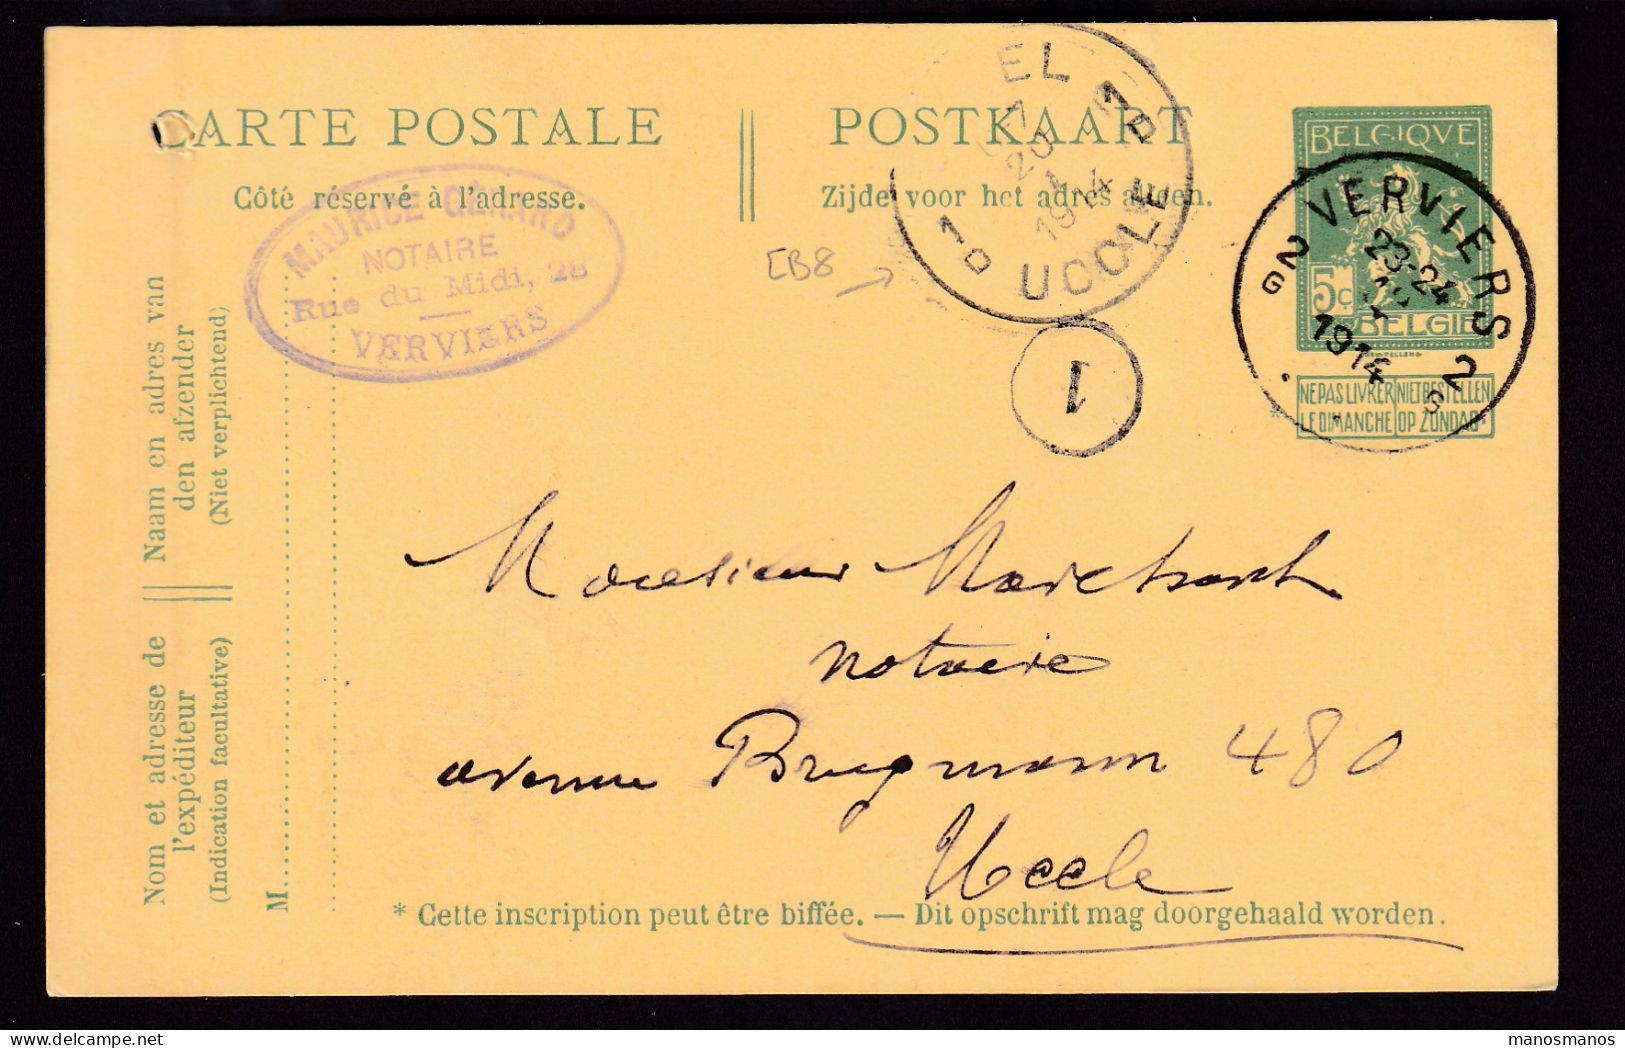 CARTE POSTALE
POSTKAART
Côté réservé à l'adresse.
Zijde voor het adres alleen.
MAURICE GÉRARD
NOTAIRE
Rue du Midi, 28
VERVIERS
EL
20
1914
1 D
1 D
UCCLE
EB8
1
BELGIQVE
5c
BELGIE
VERVIERS
23-24
1914
2 G
2 G
NE PAS LIVRER LE DIMANCHE
NIET BESTELLEN OP ZONDAG
*
Naam en adres van
den afzender
(Niet verplichtend)
Nom et adresse de
l'expéditeur
(Indication facultative)
M
Monsieur Marchant
notaire
avenue Brugmann 480
Uccle
* Cette inscription peut être biffée. — Dit opschrift mag doorgehaald worden.
manosmanos